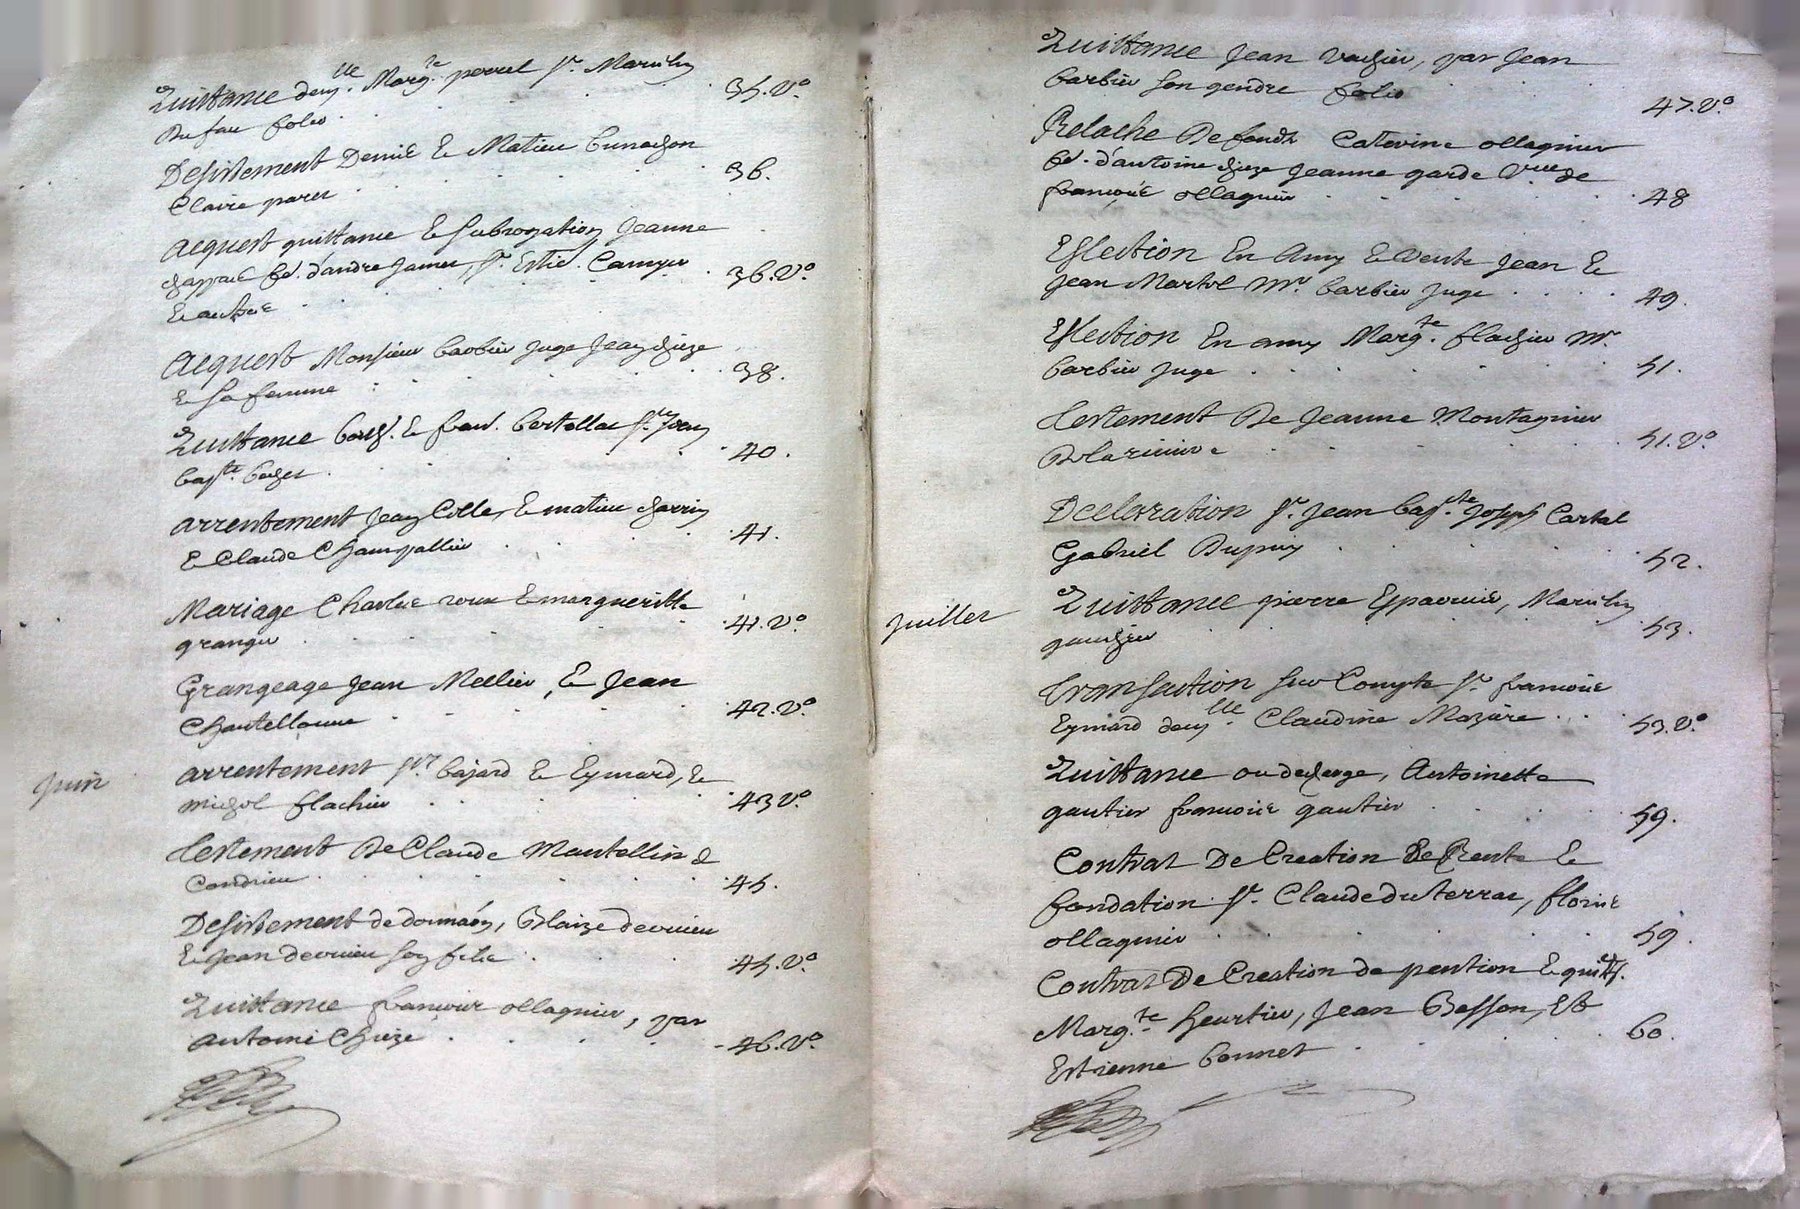 Quittance dem.lle Marg.te perrel s.r Marcelin
Dufau folio . 35.V.o
Desistement Denis & Matieu brunachon
Claire paret 36.
Acquest quittance & Subrogation Jeanne
chappuis fe. d'andre Jamet, s.r Estie. Camyer 36.V.o
& autres
Acquest Monsieur barbier juge Jean chieze
& sa femme 38.
Quittance & fran. bertollas s.r Jean
bap.te 40.
arrentement Jean Colle, & matieu charrin 41.
& Claude Champallier
Mariage Charles roux & margueritte
granger 41.V.o
Grangeage Jean Mellier, & Jean
Chantelouve 42.V.o
Juin arrentement s.r bajard & Eymard, &
michel flachier 43 V.o
testement De Claude Mantellin de
Condrieu 45.
Desistement de donnaon, Blaize devirieu
& Jean devirieu son fils 45.V.o
Quittance francois ollagnier, par
Antoine Chieze 46.V.o
Quittance Jean vachier, par Jean
barbier son gendre folio 47.V.o
Relache De fonds Caterine ollagnier
fe. d'antoine chieze Jeanne garde Vue de
francois ollagnier 48
Eslection En Amy & Vente Jean &
Jean Martel Mr. barbier juge 49.
Eslection En amy Marg.te flachier Mr.
barbier juge 51.
testement De Jeanne Montagnier
Delariviere 51.V.o
Declaration s.r Jean bap.te Joseph Cartal
Gabriel Dupuy 52.
Juillet Quittance pierre Esparvier, Marcelin
gauchier 53.
transaction sur Compte s.r francois
Eymard dem.lle Claudine Mazare 53.V.o
Quittance ou decharge, Antoinette
gautier francois gautier 59.
Contrat De Creation De Rente &
fondation s.r Claude Duterrat, floris
ollagnier 59.
Contrat De Creation de pention & quitt.
Marg.te heurtier, Jean Besson, Et
Estienne bonnet 60.